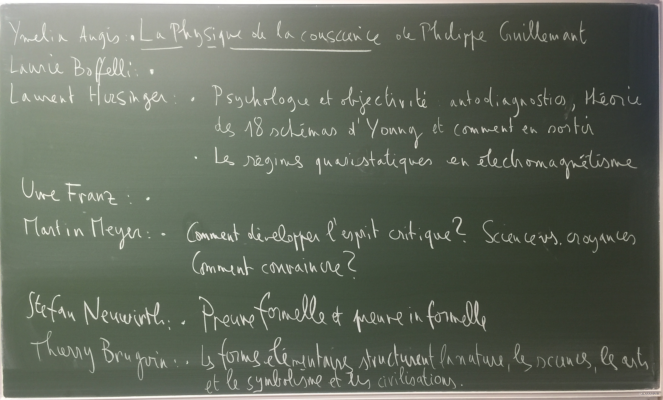 Ymelia Augis . La Physique de la conscience de Philippe Guillemant
Laurie Boffelli : .
Laurent Hursinger : . Psychologie et objectivité autodiagnostics, théorie
des 18 schémas d'Young et comment en sortir
. Les régimes quasistatiques en électromagnétisme
Uwe Franz : .
Martin Meyer : . Comment développer l'esprit critique ? Science vs. croyances
Comment convaincre ?
Stefan Neuwirth : . Preuve formelle et preuve informelle
Thierry Brugvin : . Les formes élémentaires structurent la nature, les sciences, les arts
et le symbolisme et les civilisations.